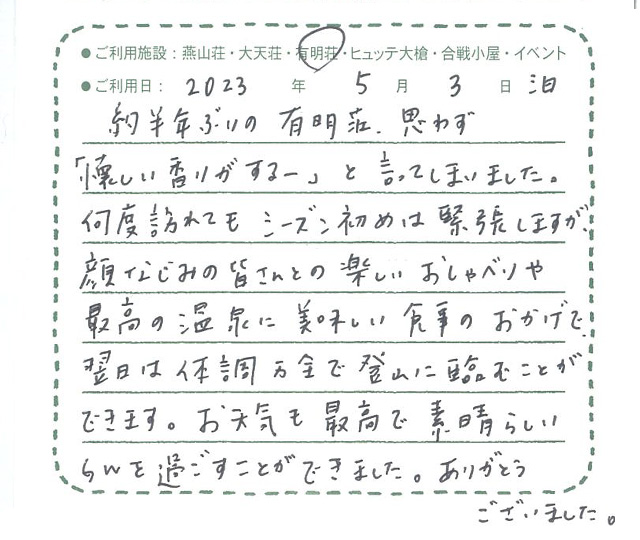 ●ご利用施設：燕山荘・大天荘・有明荘・ヒュッテ大槍・合戦小屋・イベント
●ご利用日： 2023 年 5 月 3 日 泊
約半年ぶりの 有明荘、思わず
「懐しい香りがするー」と言ってしまいました。
何度訪れても シーズン初めは 緊張しますが、
顔なじみの皆さんとの 楽しい おしゃべりや
最高の温泉に 美味しい 食事の おかげで、
翌日は 体調万全で 登山に臨むことが
できます。お天気も 最高で 素晴らしい
GWを過ごすことができました。ありがとう
ございました。